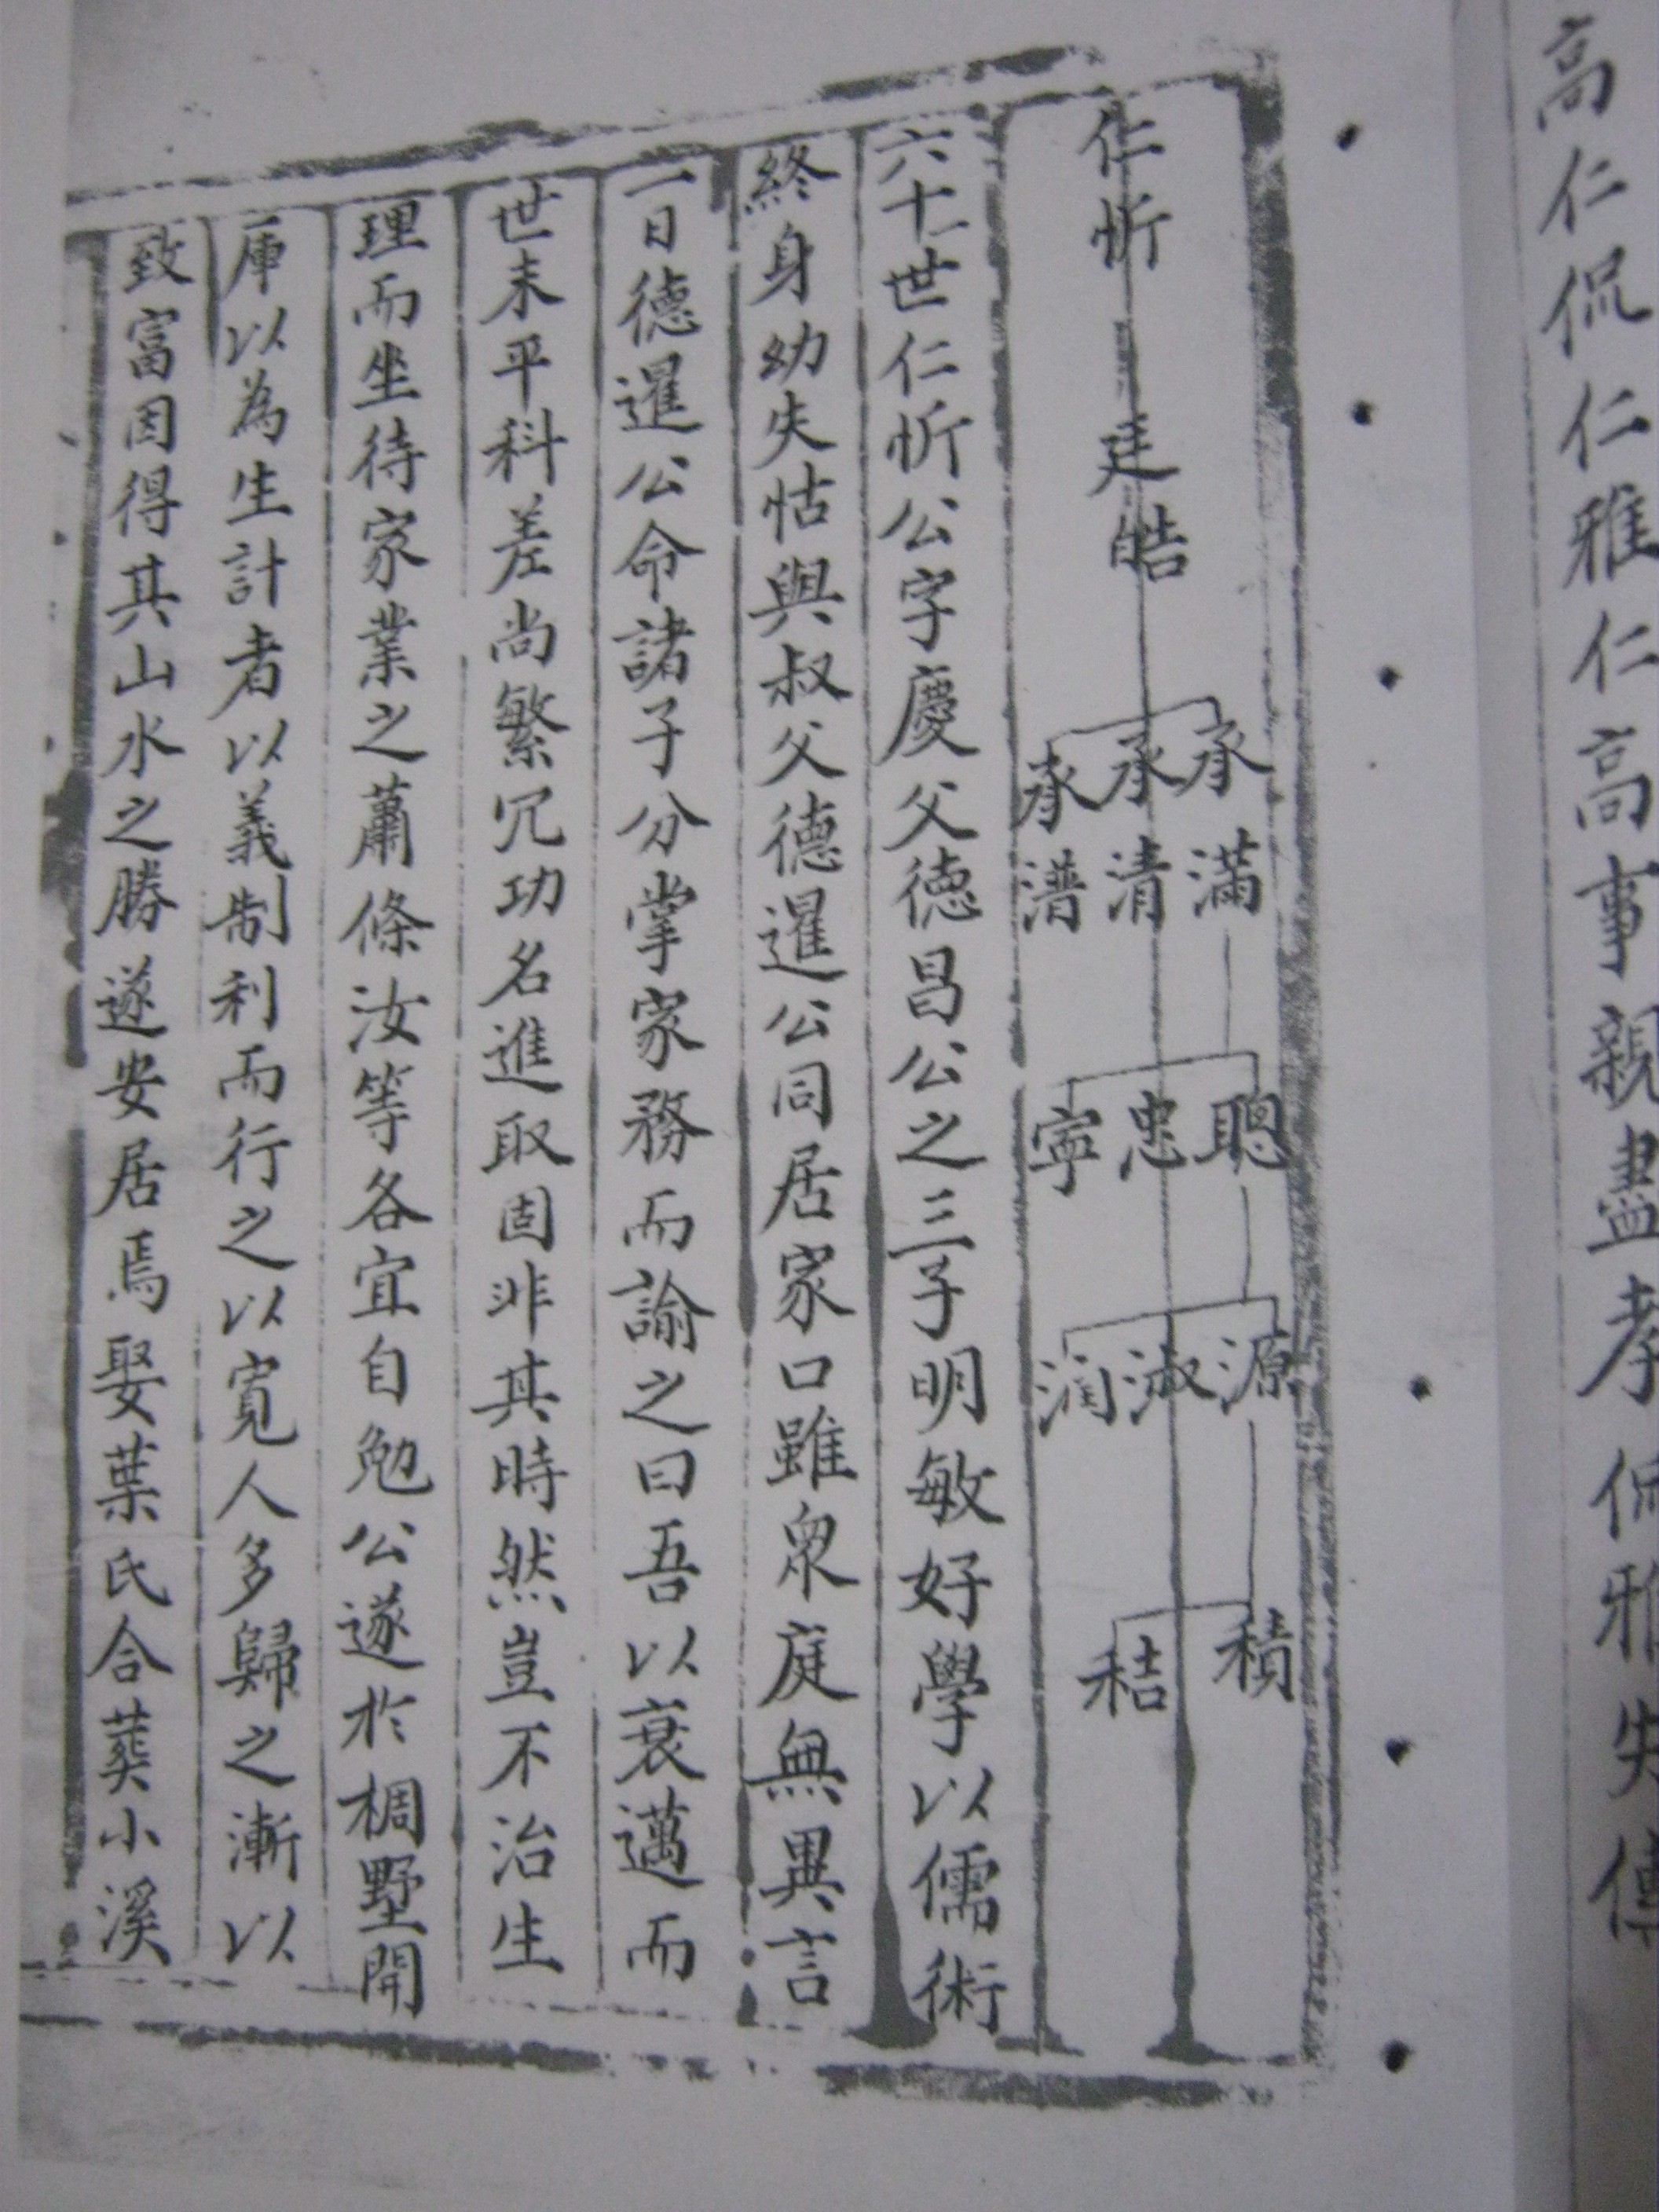 高仁侃仁雅仁高事親盡孝侃雅失傳
仁忻
廷皓
承滿 承清 承潽
聰 忠 寧
源 淑 潤
積 秸
六十一世仁忻公字慶父德昌公之三子明敏好學以儒術
終身幼失怙與叔父德暹公同居家口雖眾庭無異言
一日德暹公命諸子分掌家務而諭之曰吾以衰邁而
世未平科差尚繁冗功名進取固非其時然豈不治生
理而坐待家業之蕭條汝等各宜自勉公遂於椆墅開
庫以為生計者以義制利而行之以寬人多歸之漸以
致富因得其山水之勝遂安居焉娶葉氏合葬小溪